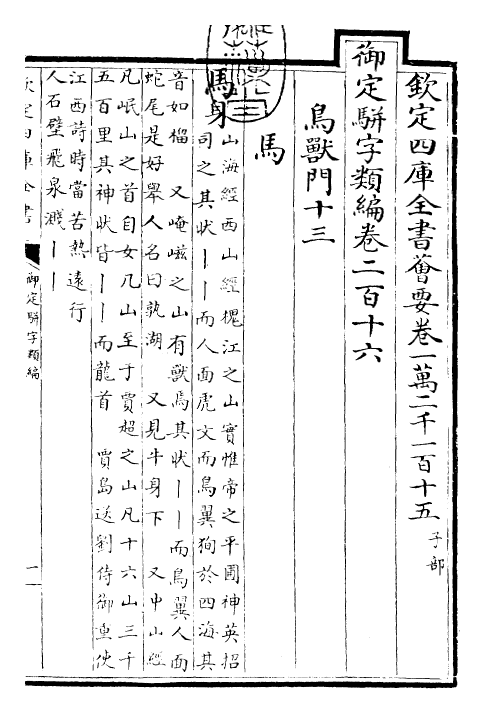 欽定四庫全書薈要卷一萬二千一百十五 子部
御定駢字類編卷二百十六
鳥獸門十三
馬
馬身 山海經西山經槐江之山實惟帝之平圃神英招
司之其狀丨丨而人面虎文而鳥翼狥於四海其
音如榴 又崦嵫之山有獸焉其狀丨丨而鳥翼人面
蛇尾是好舉人名曰孰湖 又見牛身下 又中山經
凡岷山之首自女几山至于賈超之山凡十六山三千
五百里其神狀皆丨丨而龍首 賈島送劉侍御重使
江西詩時當苦熱遠行
人石壁飛泉濺丨丨
欽定四庫全書
御定駢字類編
一